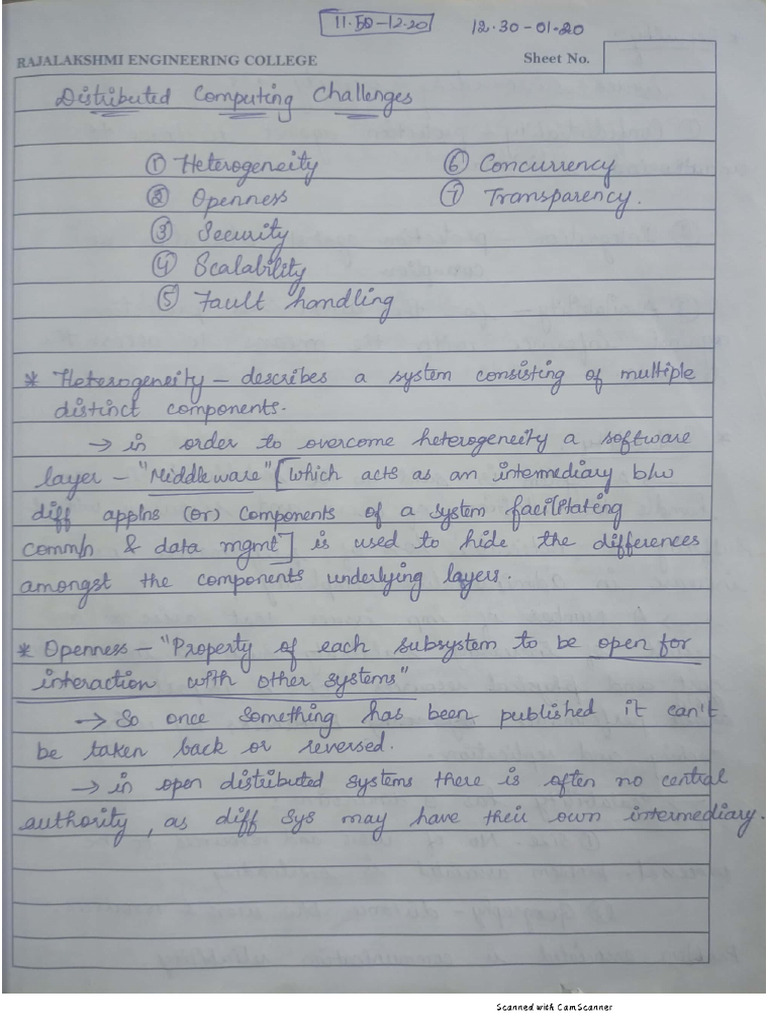 11.50-12.20 12.30-01.20
RAJALAKSHMI ENGINEERING COLLEGE Sheet No.
Distributed Computing Challenges
① Heterogeneity ⑥ Concurrency
② Openness ⑦ Transparency.
③ Security
④ Scalability
⑤ Fault handling
* Heterogeneity – describes a system consisting of multiple
distinct components.
→ in order to overcome heterogeneity a software
layer – "Middleware" [which acts as an intermediary b/w
diff applns (or) components of a system facilitating
comm/n & data mgmt] is used to hide the differences
amongst the components underlying layers.
* Openness – "Property of each subsystem to be open for
interaction with other systems"
→ So once something has been published it can't
be taken back or reversed.
→ in open distributed systems there is often no central
authority, as diff sys may have their own intermediary.
Scanned with CamScanner